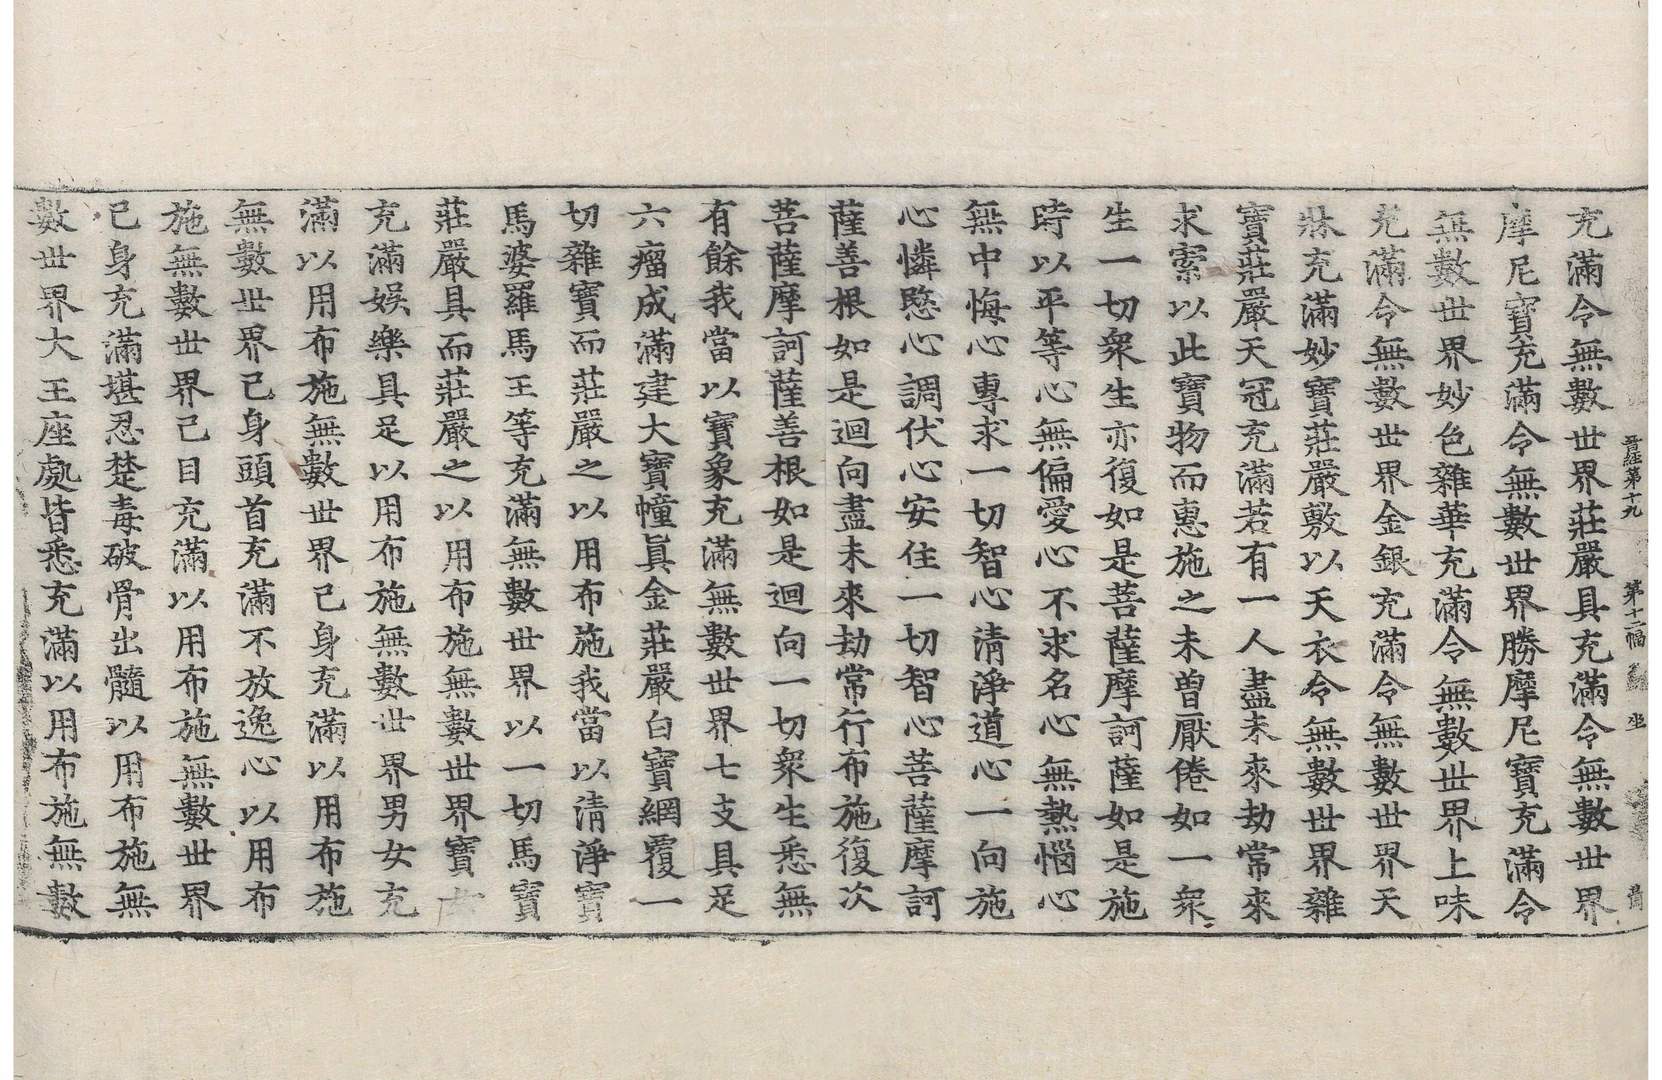 晉經第十九　第十二幅　坐
充滿令無數世界莊嚴具充滿令無數世界
摩尼寶充滿令無數世界勝摩尼寶充滿令
無數世界妙色雜華充滿令無數世界上味
充滿令無數世界金銀充滿令無數世界天
牀充滿妙寶莊嚴敷以天衣令無數世界雜
寶莊嚴天冠充滿若有一人盡未來劫常來
求索以此寶物而惠施之未曾厭倦如一衆
生一切衆生亦復如是菩薩摩訶薩如是施
時以平等心無偏愛心不求名心無熱惱心
無中悔心專求一切智心清淨道心一向施
心憐愍心調伏心安住一切智心菩薩摩訶
薩善根如是迴向盡未來劫常行布施復次
菩薩摩訶薩善根如是迴向一切衆生悉無
有餘我當以寶象充滿無數世界七支具足
六瘤成滿建大寶幢眞金莊嚴白寶網覆一
切雜寶而莊嚴之以用布施我當以清淨寶
馬婆羅馬王等充滿無數世界以一切馬寶
莊嚴具而莊嚴之以用布施無數世界寶女
充滿娛樂具足以用布施無數世界男女充
滿以用布施無數世界己身充滿以用布施
無數世界己身頭首充滿不放逸心以用布
施無數世界己目充滿以用布施無數世界
己身充滿堪忍楚毒破骨出髓以用布施無
數世界大王座處皆悉充滿以用布施無數